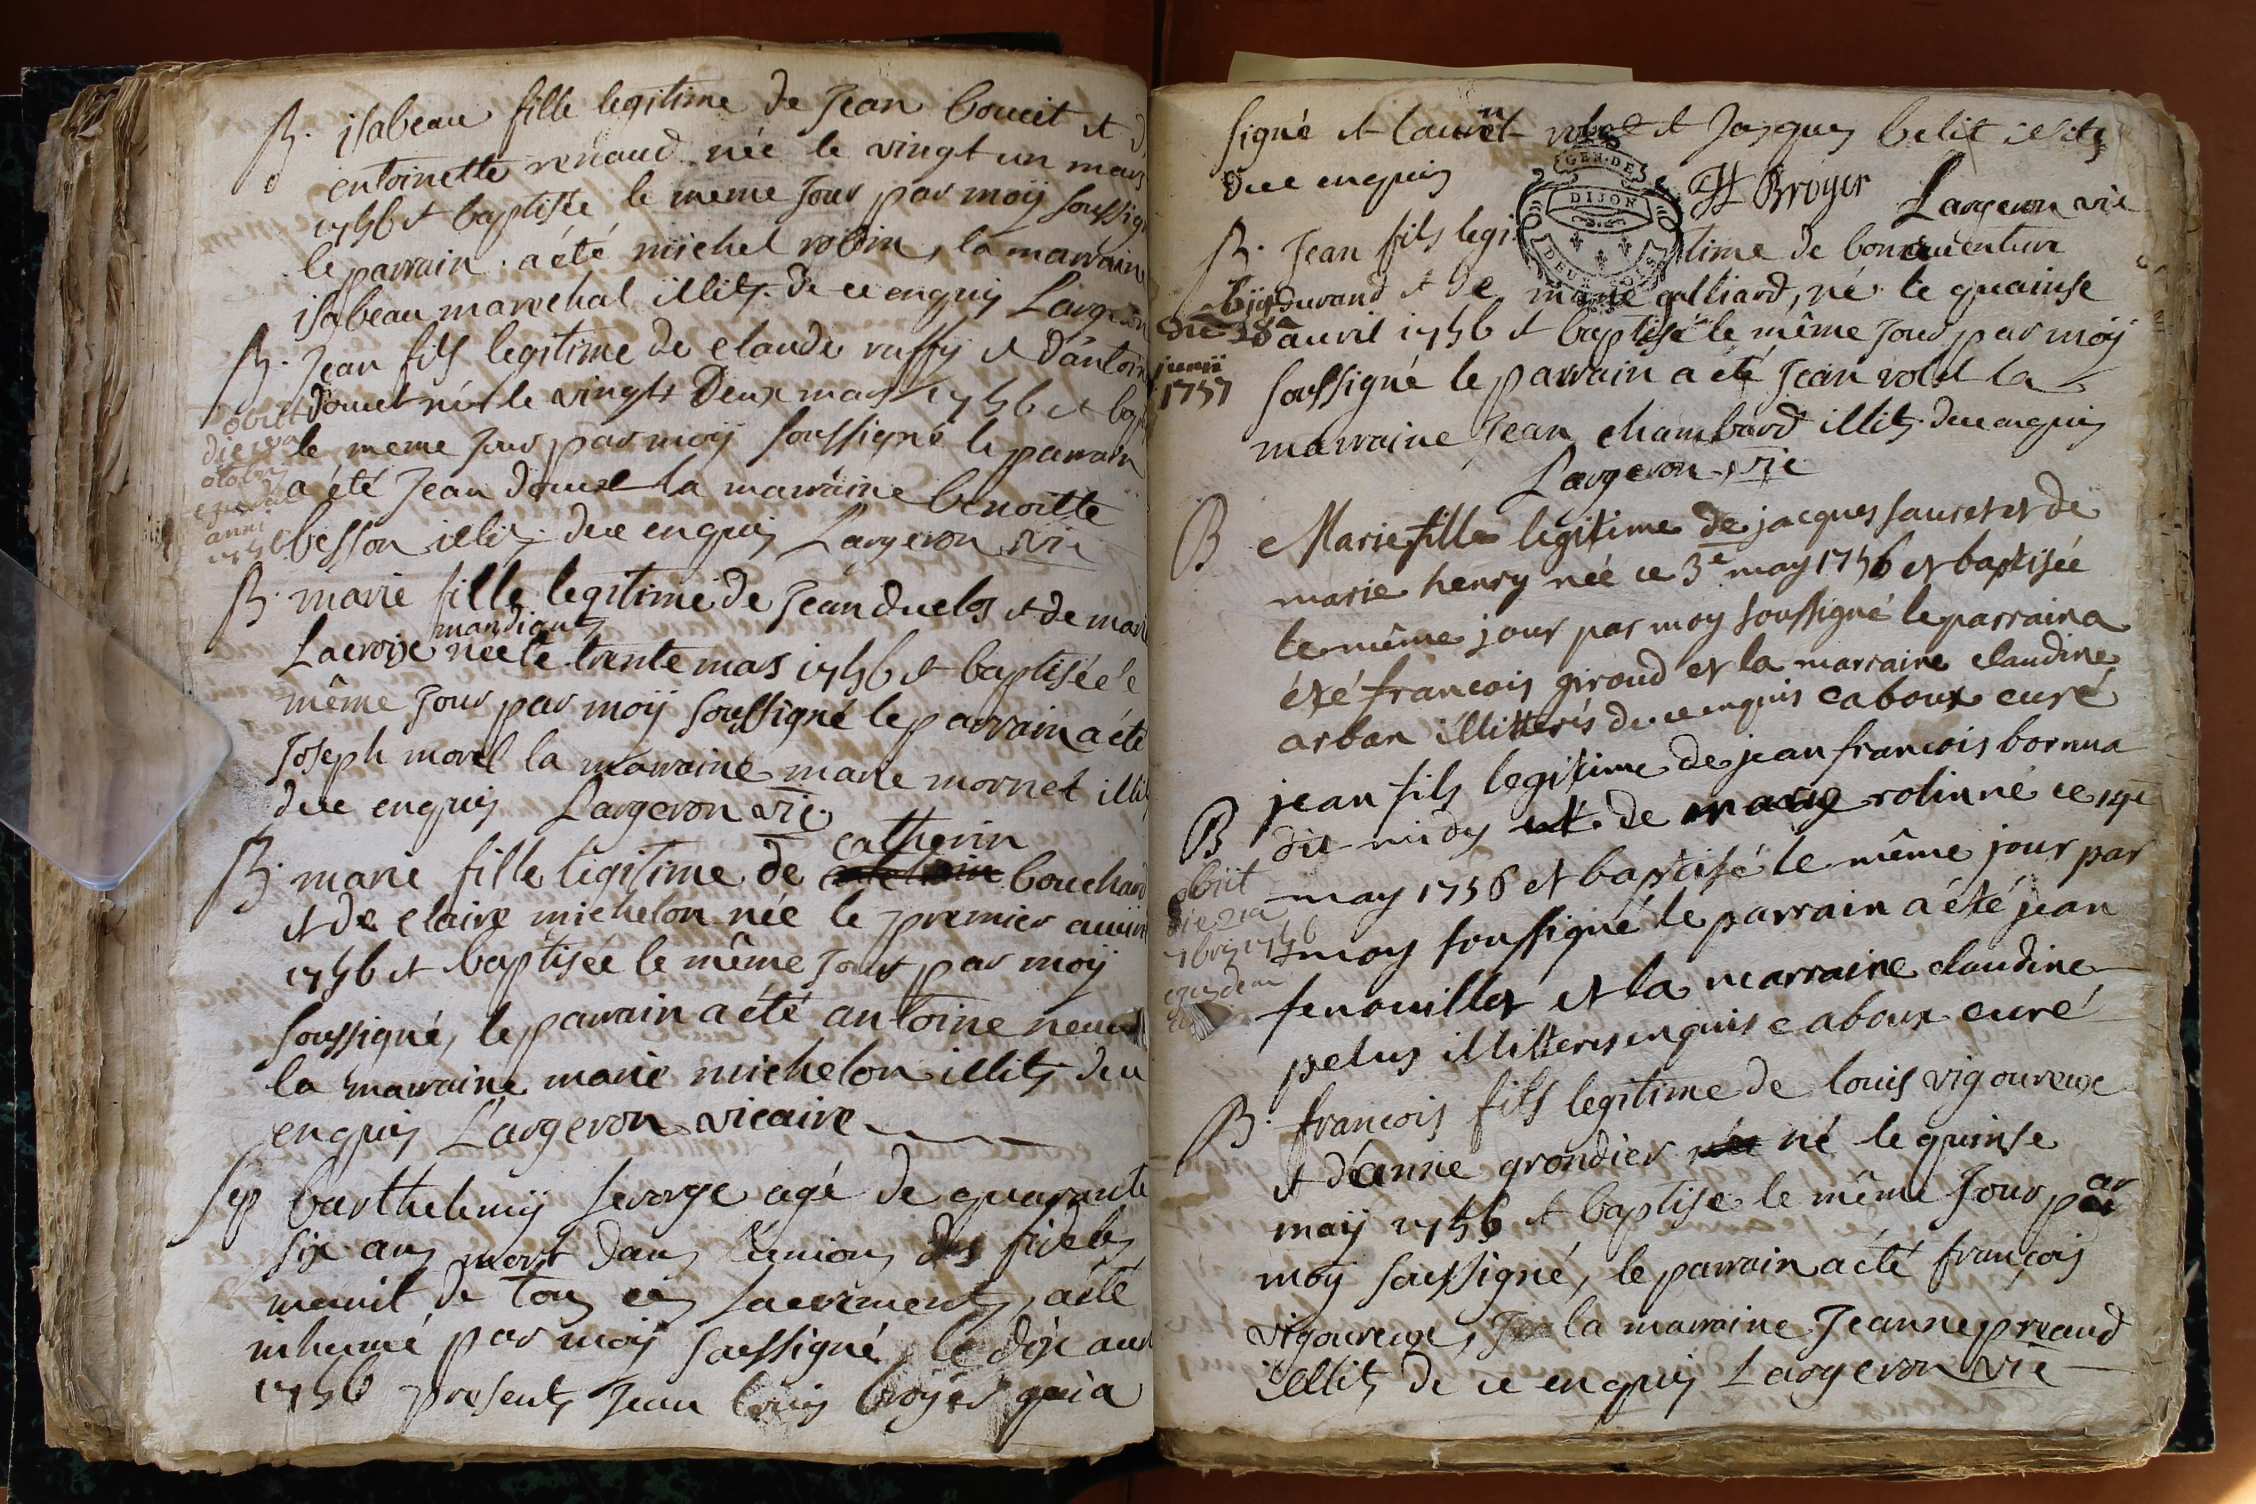 B. isabeau fille legitime de Jean boucit et d
entoinette renaud née le vingt un mars
1756 et baptisée le meme Jour par moÿ soussig
le parrain a été michel robin, la marraine
isabeau marechal illits. de ce enquis Largeron
B. Jean fils legitime de claude ruffy et d'antoin
doucet né le vingt Deux mars 1756 et bap
le meme Jour par moÿ soussigné le parrain
a été Jean doucet la marraine benoitte
besson illits. de ce enquis Largeron vic
obiit
die
octobris
ejusdem
anni
1756
B. marie fille legitime de Jean duclos et de marie
mandiants
Lacroix née le trente mars 1756 et baptisée le
même Jour par moÿ soussigné le parrain a été
Joseph morel la marraine marie mornet illit
de ce enquis Largeron vic.
catherin
B. marie fille legitime de bouchard
et de claire michelon née le premier avril
1756 et baptisée le même Jour par moÿ
soussigné, le parrain a été antoine
la marraine marie michelon illits de ce
enquis Largeron vicaire
sep barthelemÿ agé de quarante
six ans mort dans l'union des fideles
munit de tous ces sacrements, a été
inhumé par moÿ soussigné le dix avril
1756 presents Jean louis broyer qui a
signé et laurent et Jacques belit illits
de ce enquis
GEN. DE
DIJON
DEUX SOLS
Broyer Largeron vic
B. Jean fils legitime de bonaventure
durand et de marie galliard, né le quainse
avril 1756 et baptisé le même Jour par moÿ
soussigné le parrain a été Jean rolet la
marraine Jean chambard illits. de ce enquis
Largeron vic
obiit
die 28a
junii
1757
B Marie fille legitime de jacques sauret et de
marie henry née ce 3e may 1756 et baptisée
le même jour par moy soussigné le parrain a
été francois giroud et la marraine claudine
arban illitterés de ce enquis caboux curé
B jean fils legitime de jean francois bornua
dit midy et de marie rolin né ce 14e
may 1756 et baptisé le même jour par
moy soussigné le parrain a été jean
fenouillet et la marraine claudine
pelus illitterés enquis caboux curé
obiit
die 21a
7bris 1756
ejusdem
B. francois fils legitime de louis vigoureux
et d'anne grondier né le quinse
maÿ 1756 et baptise le même Jour par
moÿ soussigné, le parrain a été françois
vigoureux, la marraine Jeanne preaud
illits de ce enquis Largeron vic